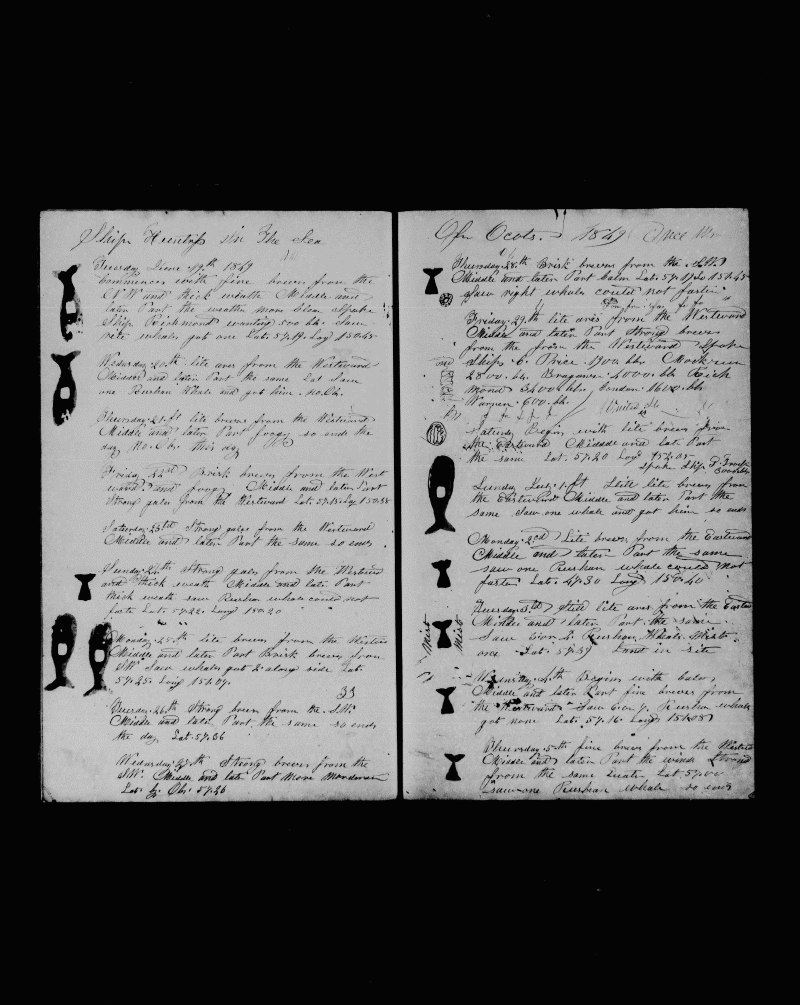 Ship In The Sea
Tuesday June 19th 1849
Commences with fine breves from the
NW and thick weath Middle and
later Part the weather more clear spoke
Ship Richmond wanting 300 bbs saw
whales got one Lat. 57.19. Long 150.45
Wedarsday. 20th lite ares from the Westward
Middle and latter Part the same Lat Saw
one Rushan Whale and got him. No. Ob.
Thursday. 21.st lite breves from the Westward
Middle and later Part foogy so ends the
day No. Obs this day
Friday 22st Brisk breves from the West
ward and foogy Middle and later Part
Strong gales from the Westward Lat. 57.15 Long 150.58
Saturday 23th Strong gales from the Westward
Middle and later Part the same so ends
Sunday 24th Strong gales from the Westward
and thick weath Middle and later Part
thick weath saw Rushan whale could not
fast Lat. 57.22. Long 150.20
Monday. 25.th lite breves from the Western
Middle and later Part Brisk breves from
SW Saw whales got 2 along side Lat.
57.25. Long 151.07.
33
Tuesday. 26th Strong breves from the S.W.
Middle and later Part the same so ends
the day Lat. 57.36
Wedarsday. 27th Strong breves from the
S.W. Middle and late Part More Moderate
Lat. by Obs. 57.26
Of Ocots. 1849
Thursday. 28.th Brisk breves from the
Middle and later Part balm Lat. 57. 151.45
Saw right whales could not fasten
Friday. 29.th lite ares from the Westward
Middle and later Part Strong breves
from the from the Westward Spoke
Ships Price 1700 bbs
2800. bb. Braganza 4000. bb Rich
mond 3400 bbs, London 1600. bb
Warren 600. bb.
United St
Saturday Begins with lite breves from
the Eastward Middle and lat. Part
the same Lat. 57.20 Long 152.05
Spoke Ship
Sunday July 1.st Still lite breves from
the Eastward Middle and later Part the
same Saw one whale and got him so ends
Monday. 2cd Lite breves from the Eastward
Middle and later Part the same
saw one Rushan whale could not
fasten Lat. 57.30 Long 150.40
Tuesday 3td Still lite ares from the Easter
Middle and later Part the same
Saw 6 or 2 Rushan Whales Mist
one Lat. 57.59 Land in site
Mist
Mist
Wedarsday. 4th Begins with balm
Middle and later Part fine breves from
the Westward Saw 6 or 7 Rushan whale
got none Lat. 57.16 Long 151.05
Thursday. 5th fine breves from the Westwd
Middle and later Part the winde
from the same Lat. 57.00
saw one Rushan whale so ends